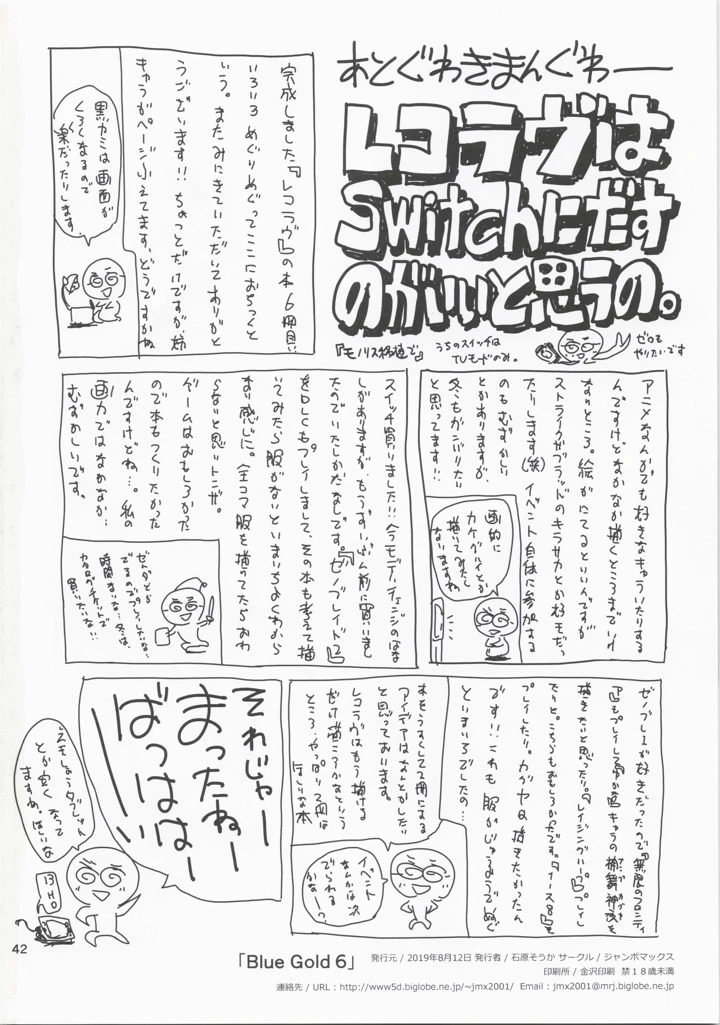 あとぐわきまんぐわー
レコラヴは
Switchにだす
のがいいと思うの。
『モノリス移植で』
うちのスイッチは
TVモードのみ。
ゼロも
やりたいです
完成しました『レコラヴ』の本6冊目い
ろいろめぐりめぐってここにおちつくと
いう。またみにきていただいてありがと
うございます!!ちょっとだけですが、姉
きゃらがページふえてます、どうですかね
黒カミは画面が
くろくなるので
楽だったりします
アニメなんかでも好きなキャラいたりする
んですけどなかなか描くところまでいれ
なりところ。絵がにてるといいんですが
ストライクザブラッドのキラサカとか好きだっ
たりします(笑)イベント自体に参加する
のもむずかしい
とかありますが
冬もがンバりたい
と思ってます!!
画的に
カケグルイとか
描いてみたく
なりますね
スイッチ買いました!!今モデルチェンジのはな
しがありますが、もうずいぶん前に買いまし
たのでいたしかたなしです。『ゼノブレイド2』
をDLCもプレイしまして、その本も考えて描
いてみたら服がないといまいちよくわから
なり感じに。全コマ服を描いてたらおわ
らないと思いトンザ。
ゲームはおもしろかった
ので本もつくりたかった
んですけどね…。私の
画力ではなかなか…
むずかしいです。
時間もないな…冬は、
カタログチケットで
買いたいな!!
ゼノブレイが好きだったので『無限のフロンティ
ア』もプレイして
描きたいと思ったり。『レイジングループ』プレイし
たりと。こちらもおもしろかったです。『イース8』も
プレイしたり。カグヤも描きたかったん
です!!これも服がじゅうようでぬぐ
といまいちでしたの…
本をうすくして2冊にする
アイデアはなんとかしたい
と思っております。
レコラヴはもう描ける
だけ描こうかなという
ところ。やっぱり2冊は
ほしいな本
イベント
なんかは次
でられる
かなーっ
それじゃー
まったねー
ばっはは
ーーい
えきしょうタブレット
とか安く なって
ますね。ほしいな
13
HD
42
「Blue Gold 6」 発行元 / 2019年8月12日 発行者 / 石原そうか サークル / ジャンボマックス
印刷所 / 金沢印刷 禁18歳未満
連絡先 / URL : http://www5d.biglobe.ne.jp/~jmx2001/ Email : jmx2001@mrj.biglobe.ne.jp